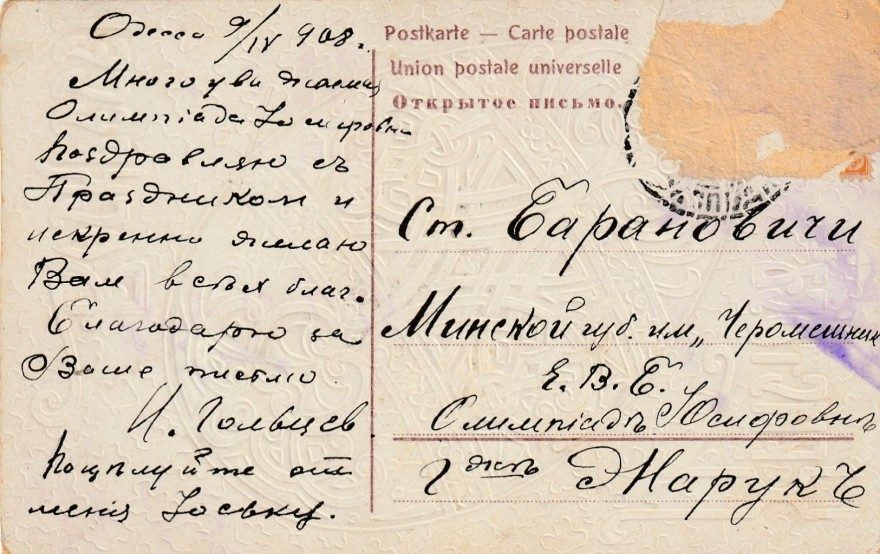 Одесса 9/IV 908 г.
Много уважаемая
Олимпіада Іосифовна
Поздравляю съ
Праздником и
искренно желаю
Вам всѣх благ.
Благодарю за
Ваше письмо
И. Гольцев.
Поцѣлуйте от
меня Юську.
Postkarte — Carte postale
Union postale universelle
Открытое письмо.
Ст. Барановичи
Минской губ. им. „Черемешник
Е. В. Б.
Олимпіадѣ Юсифовнѣ
Г жѣ Жарукъ